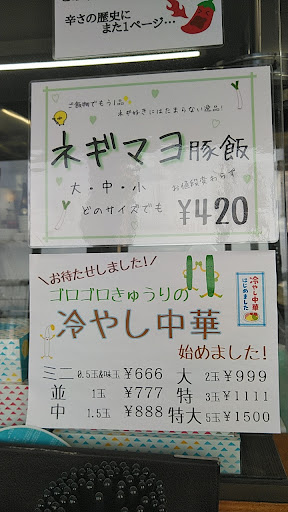 辛さの歴史に
また1ページ…
ご飯物でもう1品
ネギ好きにはたまらない逸品!
ネギマヨ豚飯
大・中・小
お値段変わらず
どのサイズでも
¥420
お待たせしました!
ゴロゴロきゅうりの
冷やし中華
はじめました
冷やし中華
始めました!
ミニ 0.5玉&味玉 ¥666
並 1玉 ¥777
中 1.5玉 ¥888
大 2玉 ¥999
特 3玉 ¥1111
特大 5玉 ¥1500